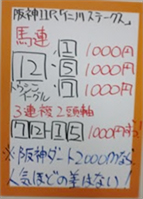 阪神11R「仁川ステークス」
馬連
1 1000円
12 5 1000円
トウシンイーグル
17 1000円
3連複2頭軸
7 12-1 5
1000円ずつ
※阪神ダート2000mなら
人気ほどの差はない!